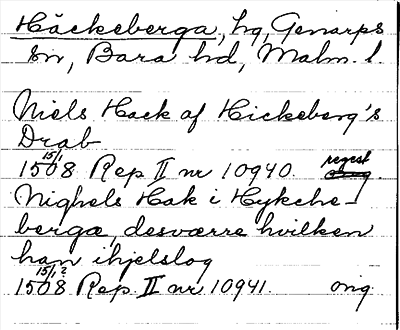 Häckeberga, hg, Genarps
sn, Bara hd, Malm. l.
Niels Hack af Hickeberg's
Drab
15/1 1508 Rep II nr 10940. regest
Nighels Hak i Hykche-
berga, desværre hvilken
han ihjelslog
15/1 ? 1508 Rep. II nr 10941. orig